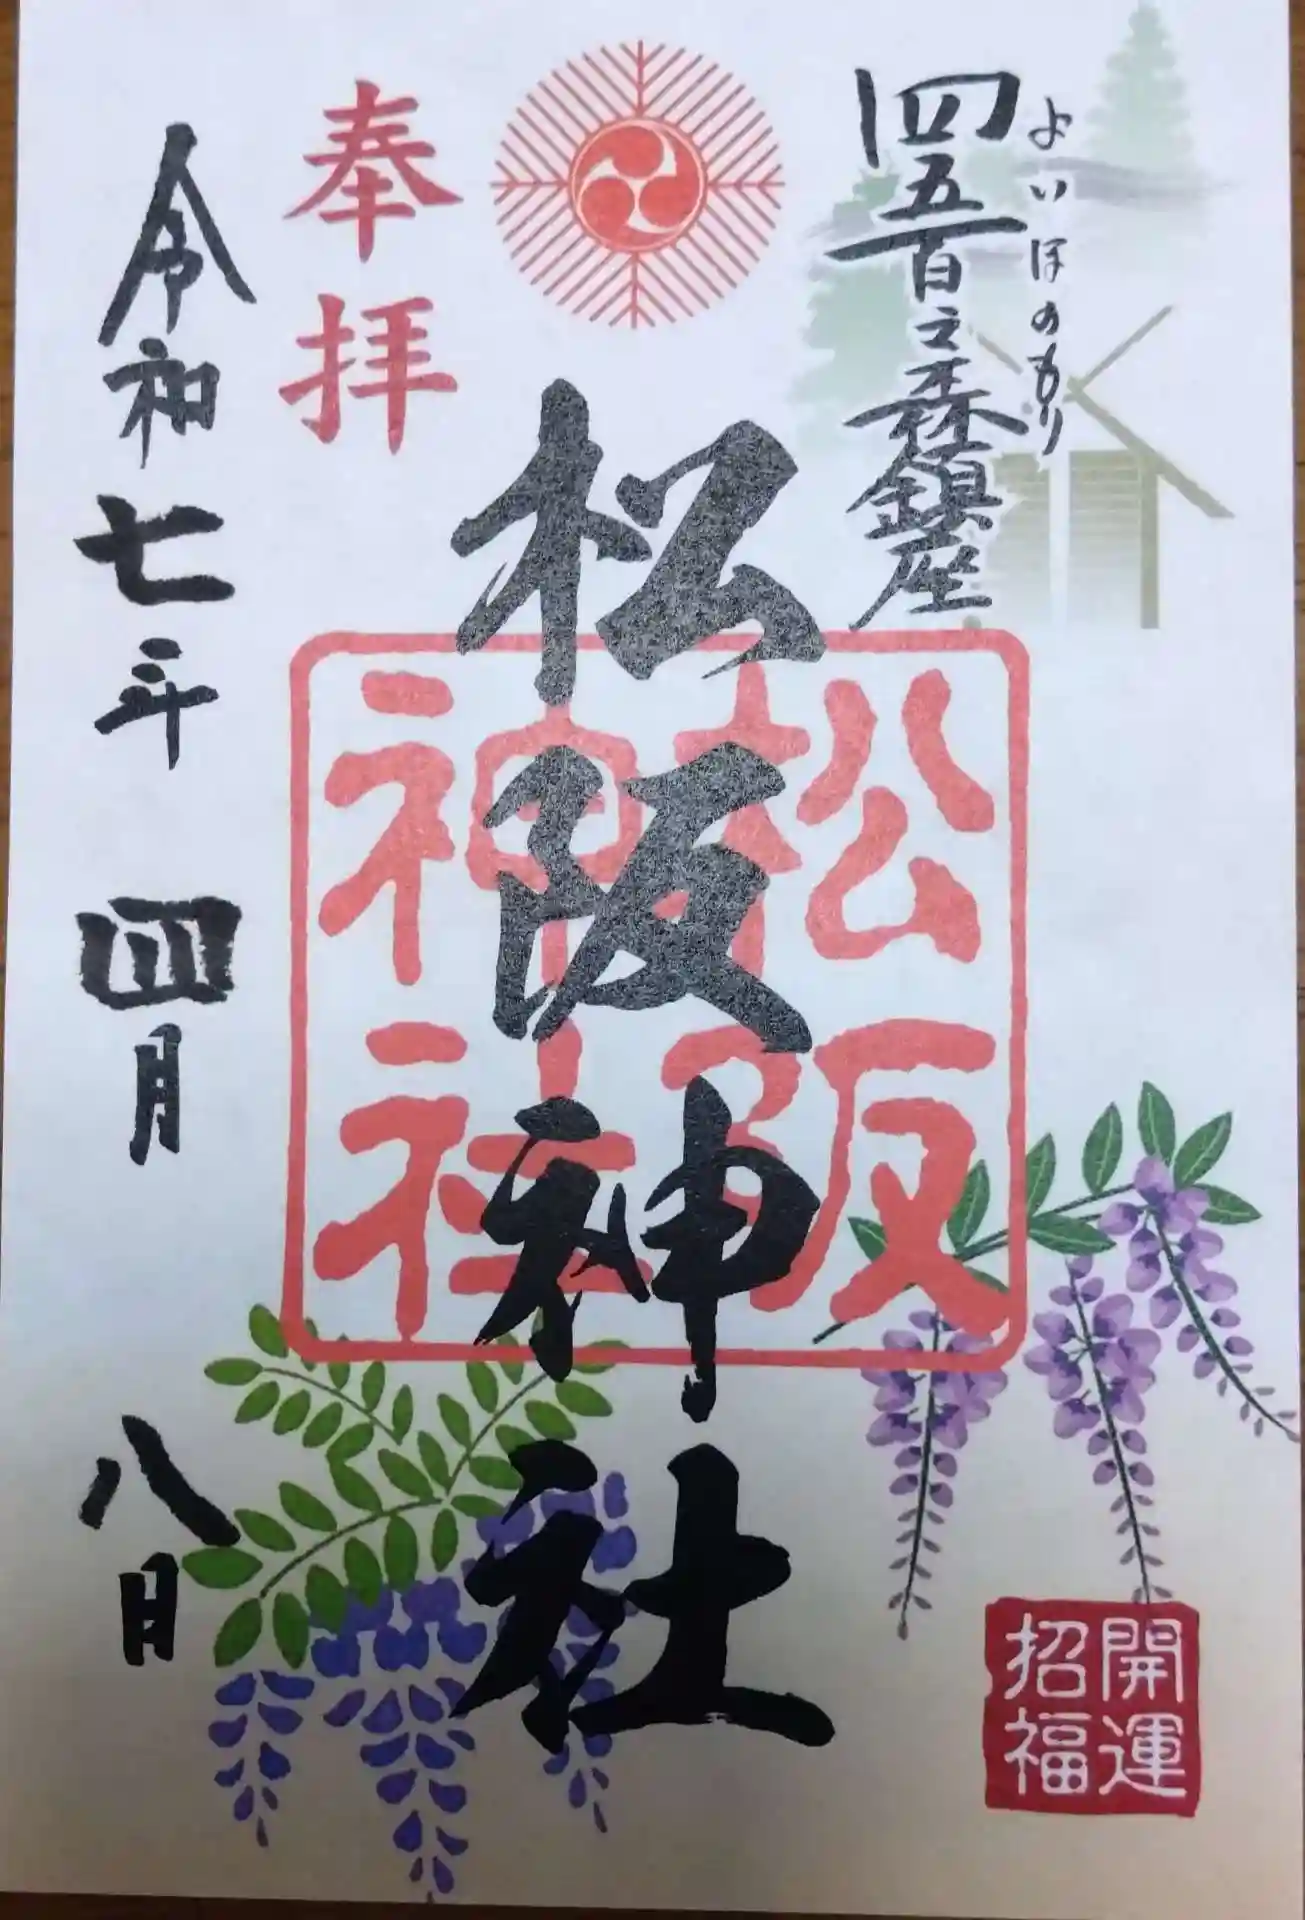 四五百之森鎮座
よいほのもり
奉拝
松阪神社
松阪
神社
令和七年四月八日
開運
招福